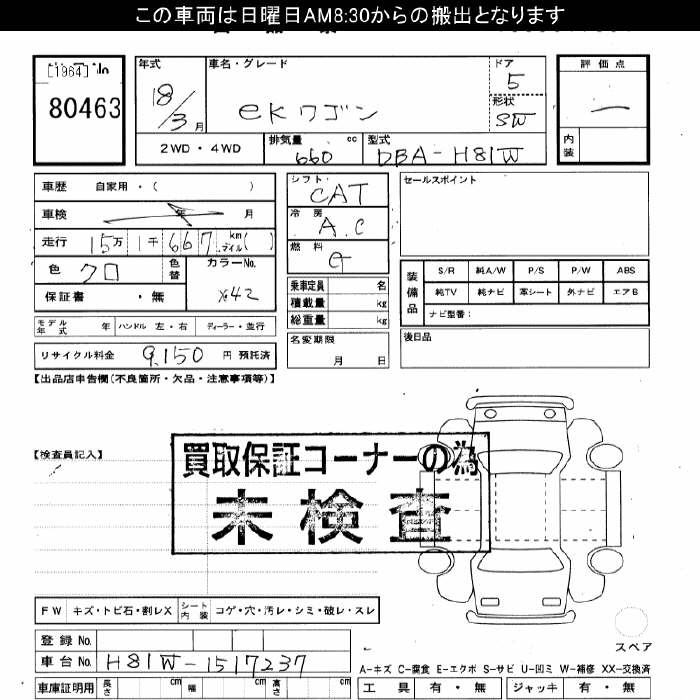 この車両は日曜日AM8:30からの搬出となります
[1964] No
80463
年式
18/3 月
車名・グレード
eKワゴン
ドア
5
形状
SW
2WD・4WD
排気量 cc
660
型式
DBA-H81W
評価点
―
内装
車歴 自家用・( )
車検 年 月
走行 15万 1千 667 km マイル( )
色 クロ
色替
カラーNo.
X42
保証書 ・無
モデル年式 年 ハンドル 左・右 ディーラー・並行
リサイクル料金 9,150 円 預託済
シフト
CAT
冷房
A.C
燃料
G
乗車定員 名
積載量 kg
総重量 kg
名変期限
月 日
セールスポイント
装備品
S/R 純A/W P/S P/W ABS
純TV 純ナビ 革シート 外ナビ エアB
ナビ型番:
後日品
【出品店申告欄(不良箇所・欠品・注意事項等)】
【検査員記入】
買取保証コーナーの為
未検査
FW キズ・トビ石・割レX シート内装 コゲ・穴・汚レ・シミ・破レ・スレ
登録No.
車台No. H81W-1517237
車庫証明用 長さ cm 幅 cm 高さ cm
スペア
A-キズ C-腐食 E-エクボ S-サビ U-凹ミ W-補修 XX-交換済
工具 有・無 ジャッキ 有・無